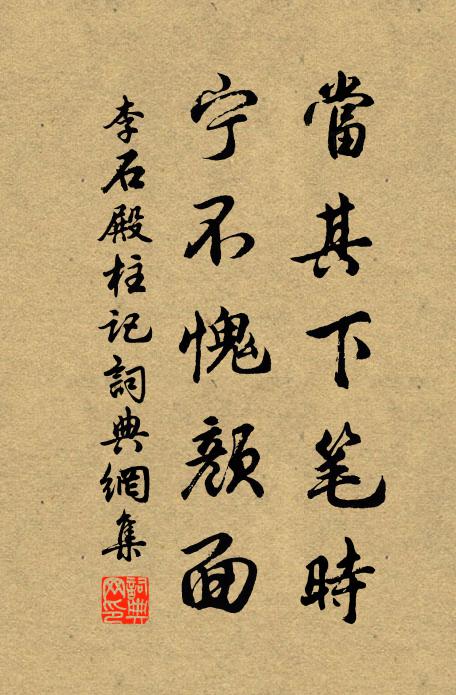 當其下笔時
宁不愧顏面
李石殿柱记詞典網集
詞典网印